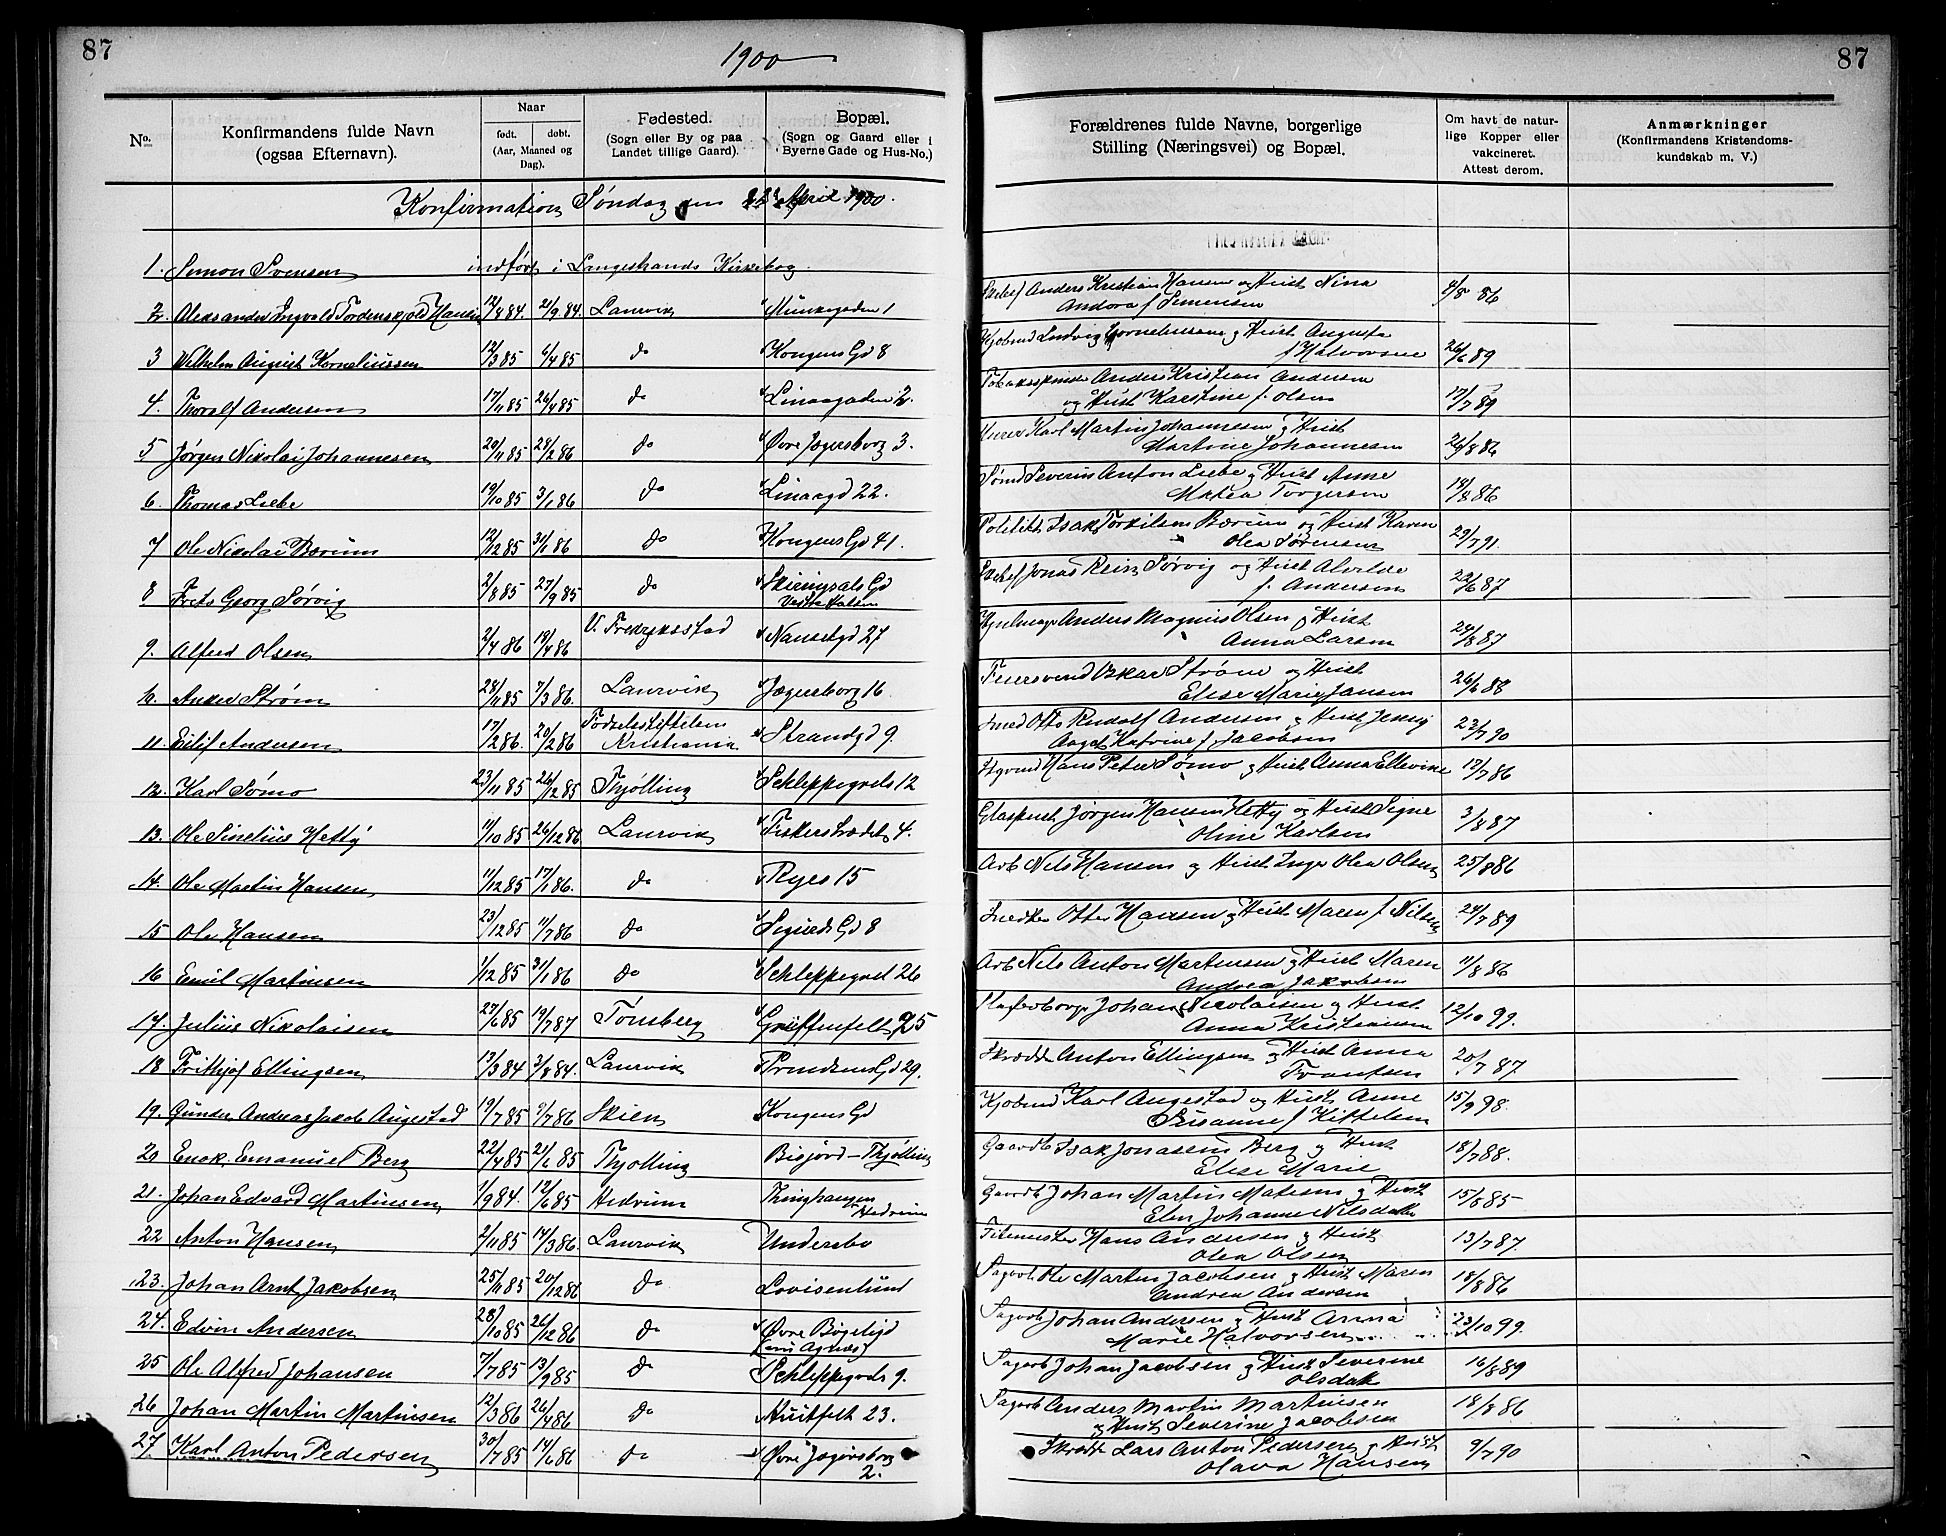 87
1900
87
No.
Konfirmandens fulde Navn
(ogsaa Efternavn).
Naar
født.
døbt.
(Aar, Maaned og
Dag).
Fødested.
(Sogn eller By og paa
Landet tillige Gaard).
Bopæl.
(Sogn og Gaard eller i
Byerne Gade og Hus-No.)
Forældrenes fulde Navne, borgerlige
Stilling (Næringsvei) og Bopæl.
Om havt de natur-
lige Kopper eller
vakcineret.
Attest derom.
Anmærkninger
(Konfirmandens Kristendoms-
kundskab m. V.)
Konfirmation Søndag den April 1900.
1. Simon Svensen indført i Langestrands Kirkebog.
2. Aleksander Ingvald Tordenskjold Hansen 12/8 84. 21/9 84. Laurvik Munkegaden 1 Anders Kristian Hansen og Hust Nina
Andora f Simensen 4/8 86
3 Vilhelm August Korneliussen 12/3 85 4/4 85 do Kongens Gd 8 Kjøbmd Ludvig Corneliussen og Hust Augusta
f Halvorsen 26/6 89
4. Thoralf Andersen 17/11 85 26/4 85 do Linaagaden 2. Tobaksspinder Anders Kristian Andersen
og Hust Karstine f. Olsen 17/7 89
5 Jørgen Nikolai Johannesen 20/11 85 28/2 86 do Øvre Jegersborg 3. Murer Karl Martin Johannesen og Hust
Martine Johannesen 26/8 86
6. Thomas Liebe 19/10 85 3/1 86 do Linaagd 22. Sømd Severin Anton Liebe og Hust Anne
Matea Torgersen 14/8 86
7 Ole Nikolai Bærum 12/12 85 31/1 86 do Kongens Gd 41. Politikt Isak Torkilsen Bærum og Hust Karen
Olea Sørensen 29/7 91.
8 Frits Georg Sørvig 2/8 85 27/9 85 do Skiringsals Gd
Vestre Halsen Jonas Rein Sørvig og Hust Alvilde
f. Andersen 22/6 87
9. Alfred Olsen 2/4 86 19/4 86 V. Fredriksstad Nansetgd 27 Anders Magnus Olsen og Hust
Anna Larsen 24/8 87
10. Anders Strøm 28/11 85 7/3 86. Laurvik Jegersborg 16 Feiersvend Oskar Strøm og Hust
Elise Marie Jansen 26/6 88
11. Eilif Andersen 17/2 86. 20/2 86 Fødselsstiftelsen
Kristiania Strandgd 9. Smed Otto Rudolf Andersen og Hust Jenny
Aaget Katrine f Jacobsen 23/7 90
12. Karl Sømo 23/11 85 26/12 85 Thjølling Schleppegrels 12 Hans Peter Sømo og Hust Anna Ellevine 17/7 86
13. Ole Sinelius Hetty 11/10 85 26/12 86 Laurvik Fiskerstrædet 4. Glaspust Jørgen Hansen Hetty og Hust Signe
Oline Karlsen 3/8 87
14. Ole Martin Hansen 11/12 85 17/1 86. do Ryes 15 Arb Nils Hansen og Hust Inger Olea Olsen 25/8 86
15 Ole Hansen 23/12 85 11/7 86 do Sigurds Gd 8 Snedker Otter Hansen og Hust Maren f. Nilsen 24/7 89
16 Emil Martinsen 1/12 85 31/1 86 do Schleppegrel 26 Arb Nils Anton Martinsen og Hust Maren
Andrea Jakobsen 11/8 86
17. Julius Nikolaisen 27/6 85 19/7 87 Tønsberg Griffenfelt 25 Johan Nicolaisen og Hust
Anna Kristiansen 12/10 99.
18 Frithjof Ellingsen 13/3 84 3/8 84. Laurvik Trondsens Gd 29. Skrædder Anton Ellingsen og Hust Anna
Frantsen 20/7 87.
19. Gunder Andreas Jacob Augestad 19/7 85 9/7 86 Skien Kongens Gd Kjøbmd Karl Augestad og Hust Anne
Susanne f Kittelsen 15/9 98.
20 Enok Emanuel Berg 22/4 85 21/6 85 Thjølling Bisjord - Thjølling Gaardb Isak Jonassen Berg og Hust
Elise Marie 18/7 88.
21. Johan Edvard Martinsen 1/9 84. 12/6 85 Hedrum Thinghaugen
Hedrum Gaardb Johan Martin Matisen og Hust
Elen Johanne Nilsdatter 15/8 85
22 Anton Hansen 2/11 85 14/3 86. Laurvik Undersbo Filemester Hans Andersen og Hust
Olea Olsen 13/7 87.
23. Johan Arnt Jakobsen 25/11 85 20/12 86 do Lovisenlund Sagarb Ole Martin Jacobsen og Hust Maren
Andrea Andersen 18/8 86
24. Edvin Andersen 28/10 85 26/12 86 do Øvre Bøgeligd
Sagarb Johan Andersen og Hust Anna
Marie Halvorsen 23/10 99.
25 Ole Alfred Johansen 7/7 85 13/9 85 do Schleppegrels 9. Sagarb Johan Jacobsen og Hust Severine
Olsdatr 16/8 89
26 Johan Martin Martinsen 12/3 86 26/4 86 do Huitfelt 23. Sagarb Anders Martin Martinsen
og Hust Severine Jacobsen 18/8 86
27. Karl Anton Pedersen 30/7 85 14/6 86 do Øvre Jegersborg
2. Skrædder Lars Anton Pedersen og Hust
Olava Hansen 9/7 90